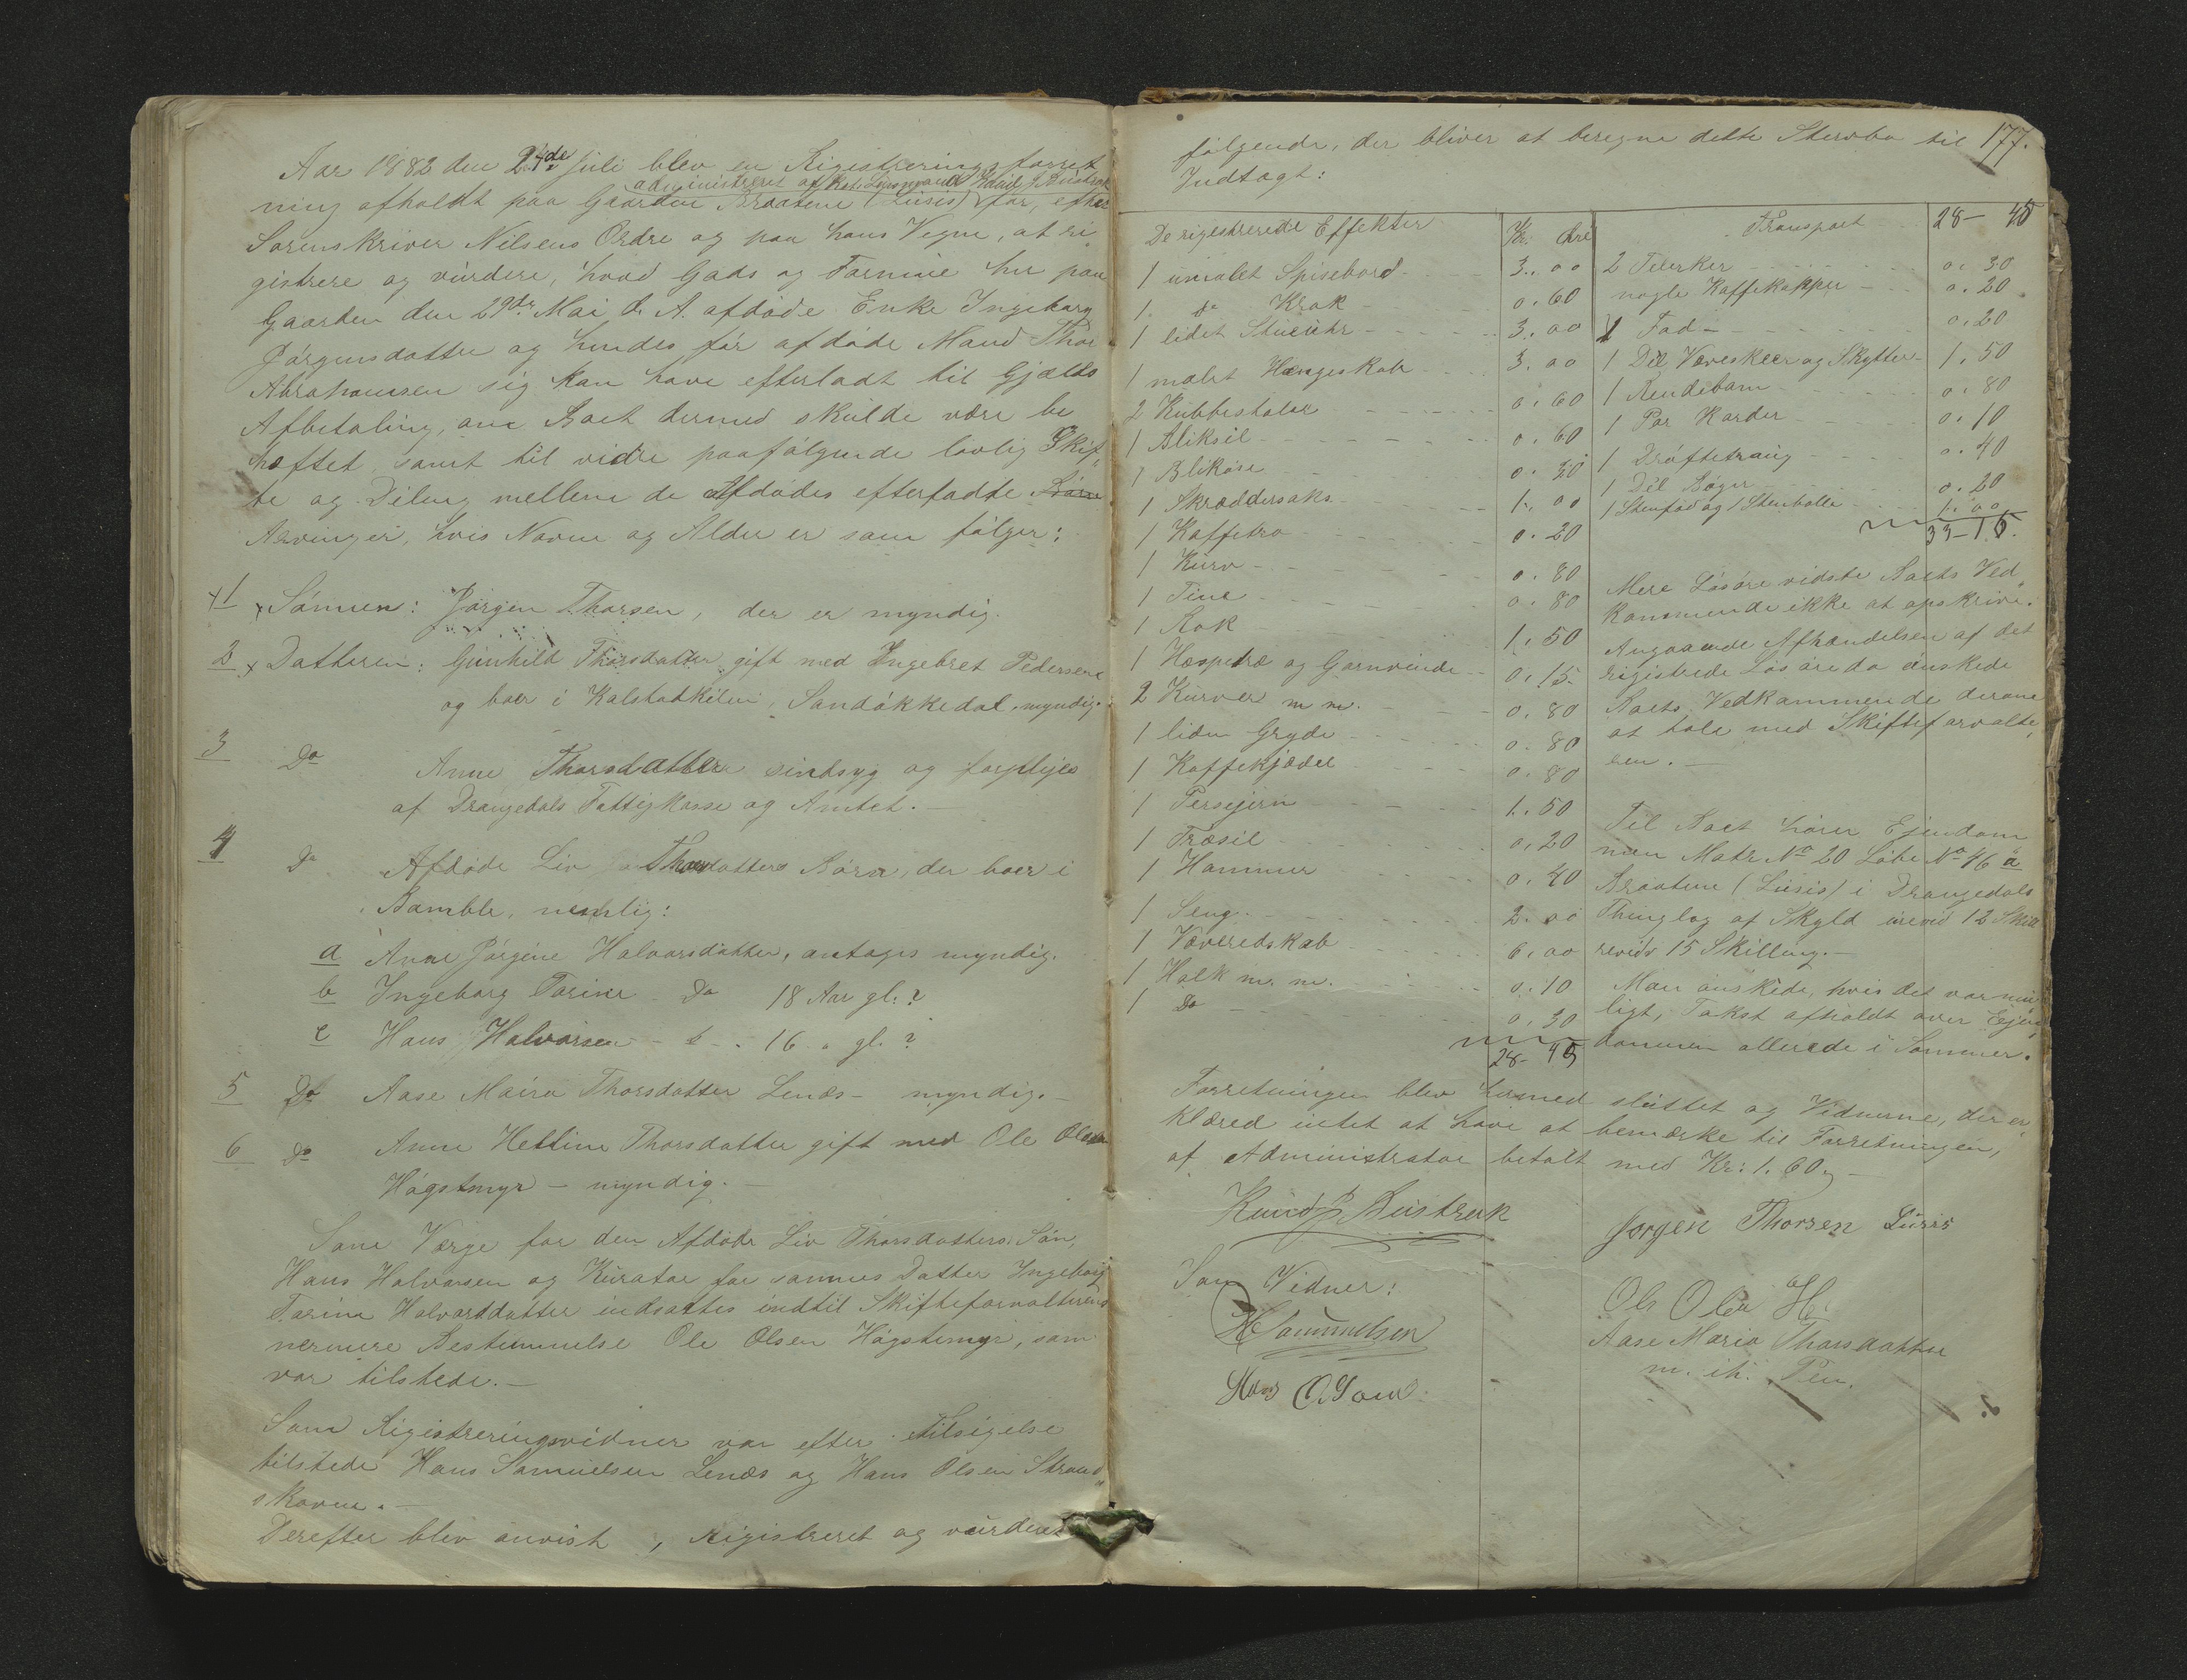 Aar 1882 den 24de Juli blev en Rigistreringsforret
administreret af Kst. Lensmand Knud J. Bustrak
ning afholdt paa Gaarden Braatene (Lusis) for, efter
Sorenskriver Nilsens Ordre og paa hans Vegne, at re
gistrere og vurdere, hvad Gods og Formue her paa
Gaarden den 29de Mai d. A. afdøde Enke Ingeborg
Jørgensdatter og hendes før afdøde Mand Thor
Abrahamsen sig kan have efterladt til Gjælds
Afbetaling, om Boet dermed skulde være be
hæftet, samt til videre paafølgende lovlig Skif„
te og Deling mellem de Afdødes efterladte Børn
Arvinger, hvis Navne og Alder er som følger:
1 Sønnen: Jørgen Thorsen, der er myndig.
2 Datteren: Gunhild Thorsdatter gift med Engebret Pedersen
og boer i Kalstadkilen, Sandøkkedal, myndig.
3 Do Anne Thorsdatter sindsyg og forpleies
af Drangedals Fattigkasse og Amtet.—
4 Do Afdøde Liv Thorsdatters Børn, der boer i
Bamble, nemlig:
a Anne Jørgine Halvorsdatter, antages myndig.
b Ingeborg Torine Do 18 Aar gl.?
c Hans Halvorsen - 16 „ gl.?
5 Do Aase Maria Thorsdatter Lenæs - myndig.—
6 Do Anne Helline Thorsdatter gift med Ole Olsen
Høgstmyr — myndig.—
Som Verge for den Afdøde Liv Thorsdatters Søn,
Hans Halvorsen og Kurator for sammes Datter Ingeborg
Torine Halvorsdatter indsattes indtil Skifteforvalterens
nermere Bestemmelse Ole Olsen Høgstemyr, som
var tilstede.—
Som Rigistreringsvidner var efter Tilsigelse
tilstede Hans Samuelsen Lenæs og Hans Olsen Strand„
skoven.—
Derefter blev anvist, rigistreret og vurderet
177.
følgende, der bliver at beregne dette Sterbo til
Indtægt:
De rigistrerede Effekter Kr. Øre
1 umalet Spisebord 3. 00
1 do Krak 0. 60
1 lidet Stueuhr 3. 00
1 malet Hængeskab 3. 00
2 Kubbestoler 0. 60
1 Bliksil 0. 60
1 Blikøse 0. 20
1 Skræddersaks 1. 00
1 Kaffebro 0. 20
1 Kurv 0. 80
1 Tine 0. 80
1 Rok 1. 50
1 Haspetræ og Garnvinde 0. 15
2 Kurver m m. 0. 80
1 liden Gryde 0. 80
1 Kaffekjædel 0. 80
1 Persejern 1. 50
1 Træsil 0. 20
1 Hammer 0. 40
1 Seng 2. 00
1 Væveredskab 6. 00
1 Holk m. m. 0. 10
1 Do 0. 30
28- 45
Transport 28— 45
2 Telerker 0. 30
nogle Kaffekopper 0. 20
1 Fad 0. 20
1 Del Væveskeer og Skytter 1. 50
1 Rendebom 0. 80
1 Par Karder 0. 10
1 Drøftetraug 0. 40
1 Del Bøger 0. 20
1 Stenfad og 1 Stenbolle 1. 00
33-15.
Mere Løsøre vidste Boets Ved„
kommende ikke at opskrive.
Angaaende Afhændelsen af det
rigistrede Løsøre da ønskede
Boets Vedkommende derom
at tale med Skifteforvalte„
ren.—
Til Boet hører Ejendom
men Matr No 20 Løbe No 46 a
Braatene (Lusis) i Drangedals
Thinglag af Skyld urevid 12 Skill
revidr 15 Skilling.—
Man ønskede, hvis det var mu
ligt, Takst afholdt over Ejen„
dommen allerede i Sommer.
Forretningen blev hermed sluttet og Vidnerne, der er„
klæred intet at have at bemærke til Forretningen,
af Administrator betalt med Kr: 1. 60.—
Knud J. Bustrak
Jørgen Thorsen Lusis
Som Vidner:
H Samuelsen
Hans O.
Ole Olsen H.
Aase Maria Thorsdatter
m. ih. Pen.